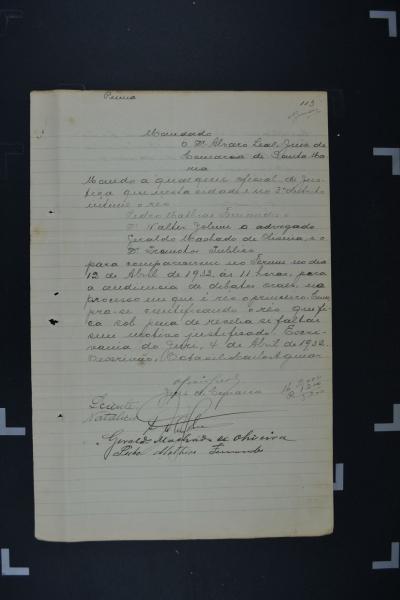 113
Mandado
O Dr. Alvaro Leal, Juiz de
Comarca de Santa Ma
ria
Mando a qualquer oficial de jus
tiça que nesta cidade e no 3º distrito
intime o réo
Pedro Mathias Fernandes
Dr. Walter Jobim e advogado
Geraldo Machado de Oliveira e o
Dr. Promotor Publico
para comparecerem no Forum no dia
12 de Abril de 1932, ás 11 horas, para
a audiencia de debates oraes, no
processo em que é réo o primeiro. Cum
pra-se certificando o réo que fi
ca sob pena de revelia si faltar
sem motivo justificado. Escri
vania do Juri, 4 de Abril de 1932.
Escrivão,
Juiz de Comarca
Sciente
Geraldo Machado de Oliveira
Pedro Mathias Fernandes